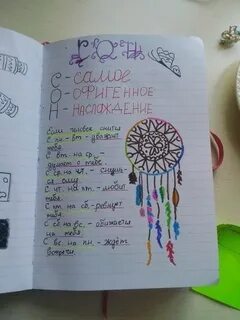 С - САМОЕ
О - ОФИГЕННОЕ
Н - НАСЛАЖДЕНИЕ
Если человек снится
С пн. - вт. - уважает
тебя.
С вт. на ср. -
думает о тебе.
С ср. на чт. -
С чт. на пт. - любит
тебя.
С пт. на сб. - ревнует
С сб. на вс. - обижается
на тебя.
С вс. на пн. - ждёт
встречи.